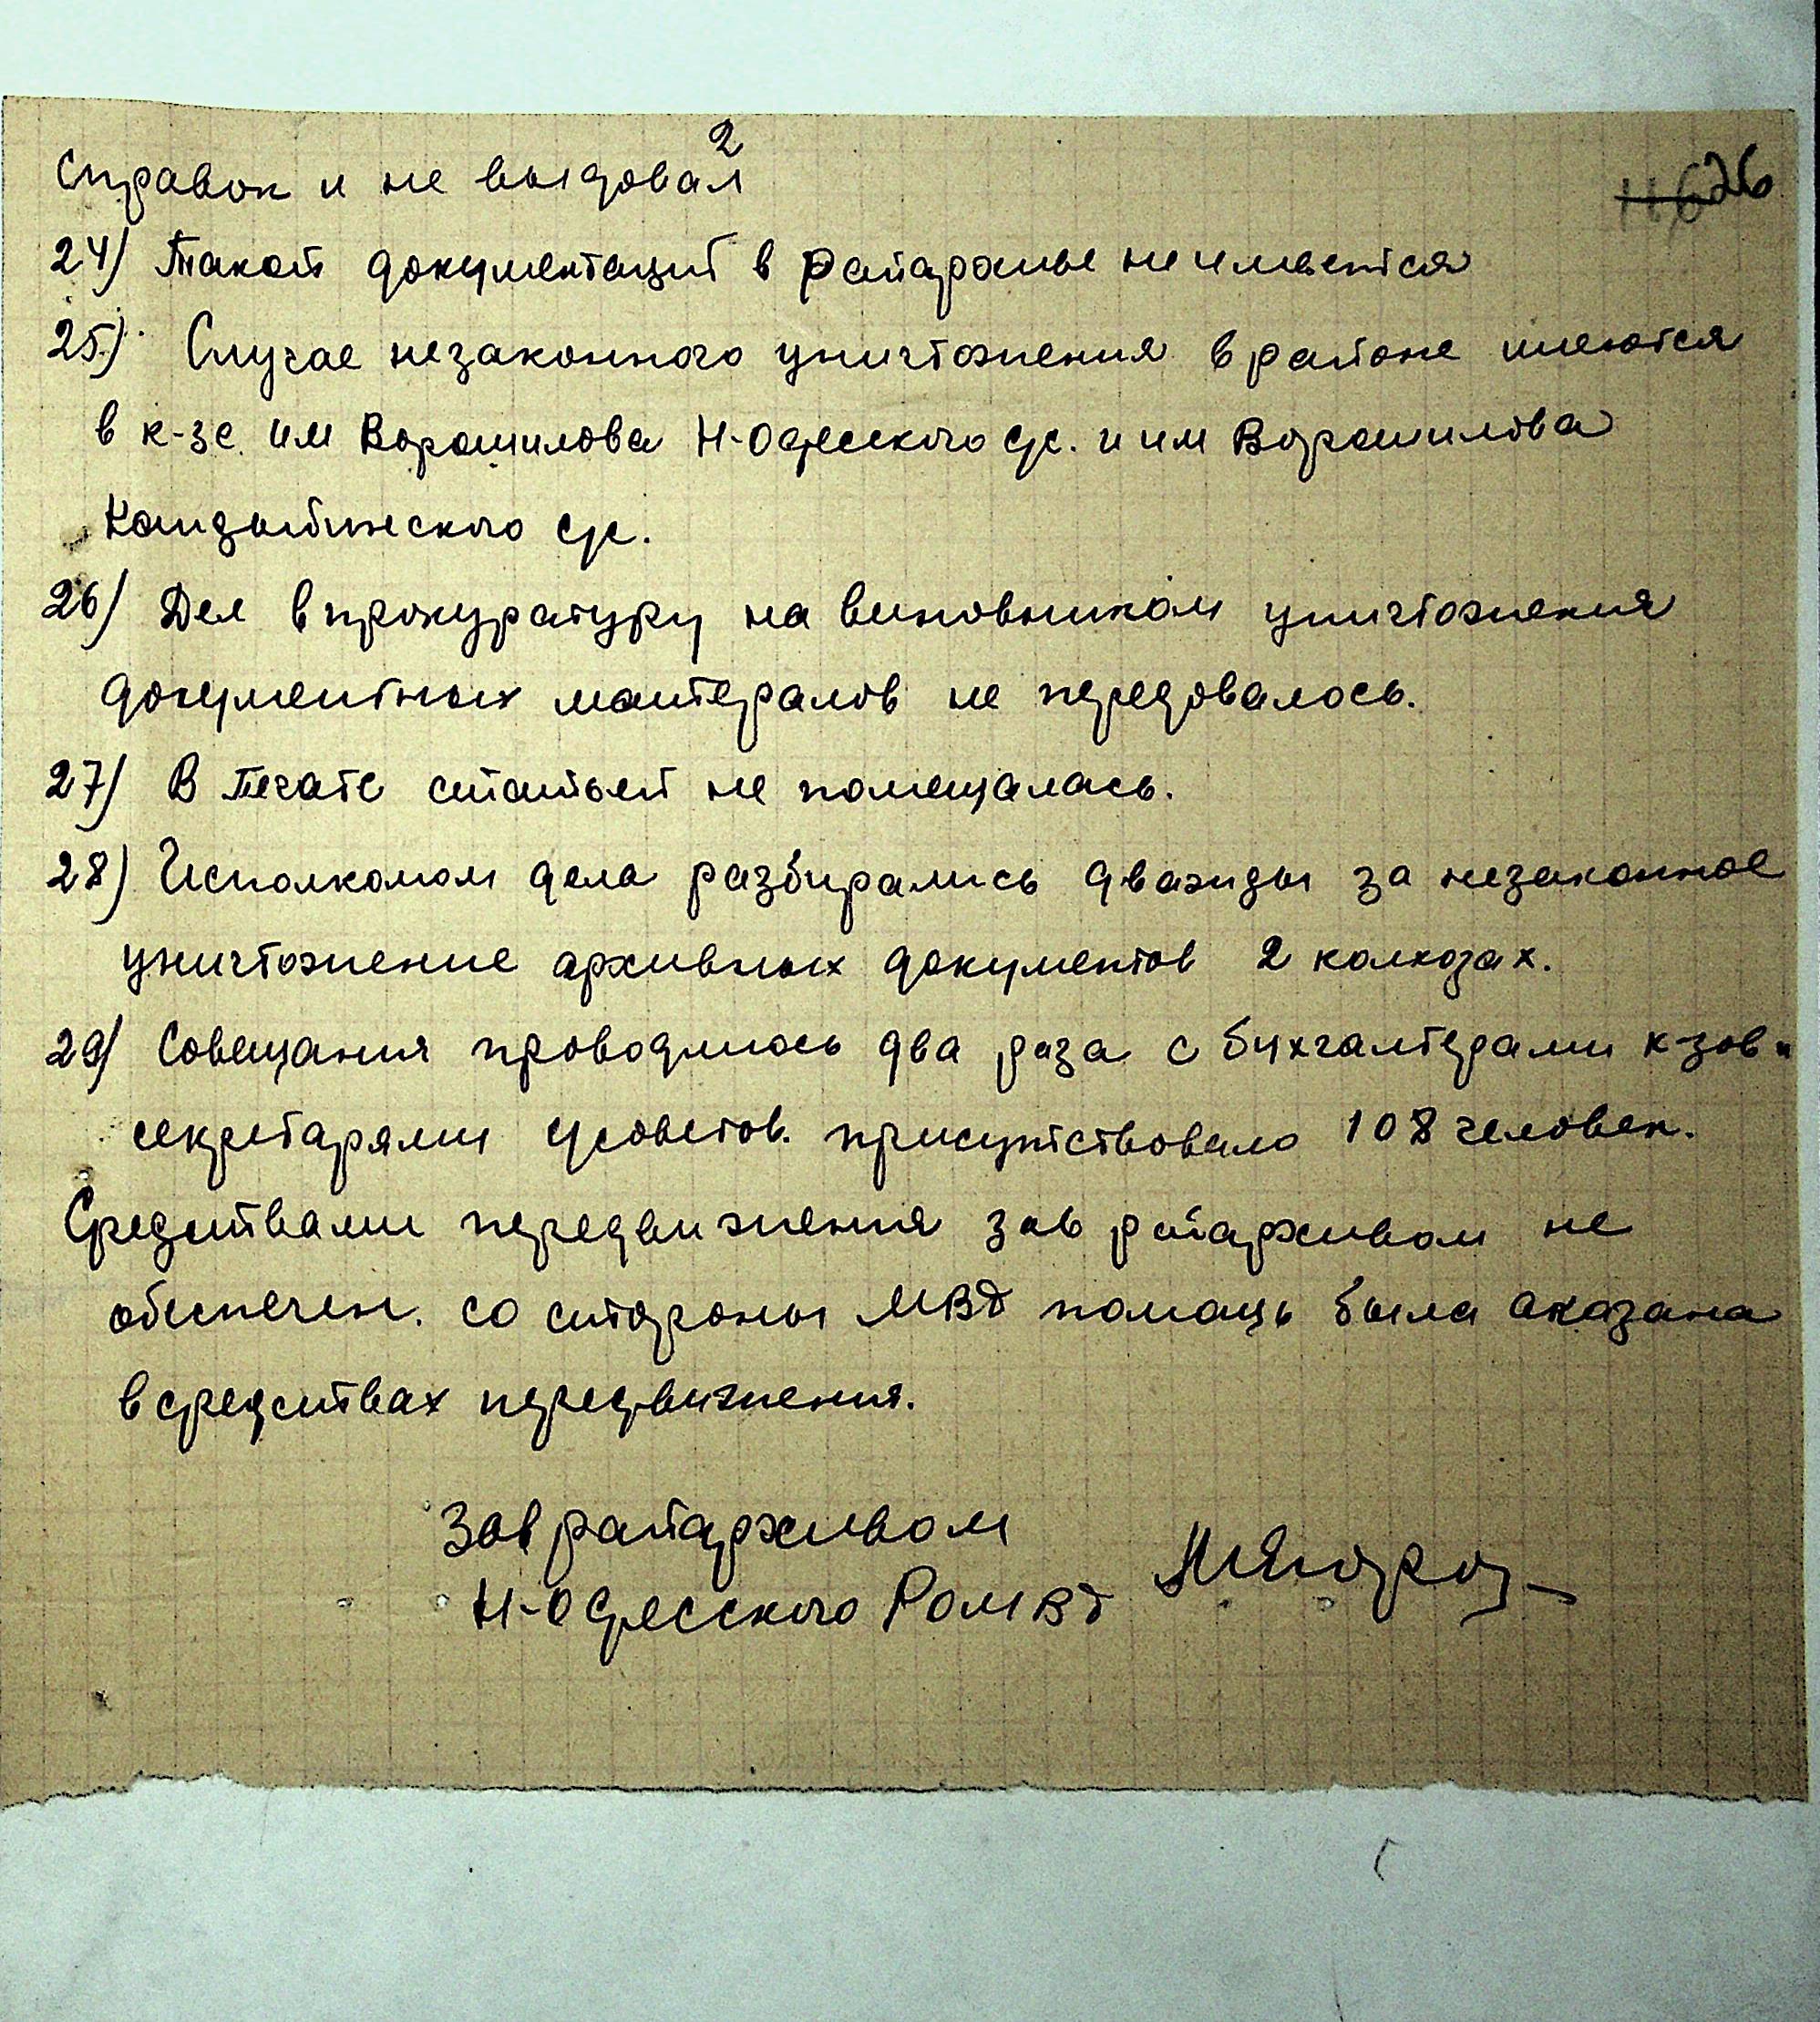 2
справок и не выдовал
26
24) Такой документаций в райархиве не имеется
25) Случае незаконного уничтожения в районе имеются
в к-зе им Ворошилова Н-Одесского с/с. и им Ворошилова
Кандыбинского с/с.
26) Дел в прокуратуру на виновником уничтожения
документных матералов не передовалось.
27) В печате статьей не помещалась.
28) Исполкомом дела разбирались дважды за незаконное
уничтожение архивных документов 2 колхозах.
29) Совещания проводилось два раза с бухгалтерами к-зов и
секретарями с/советов. присутствовало 108 человек.
Средствами передвижения зав райархивом не
обеспечен. со стороны МВД помощь была аказана
в средствах передвижения.
Зав райархивом
Н-Одесского РОМВД